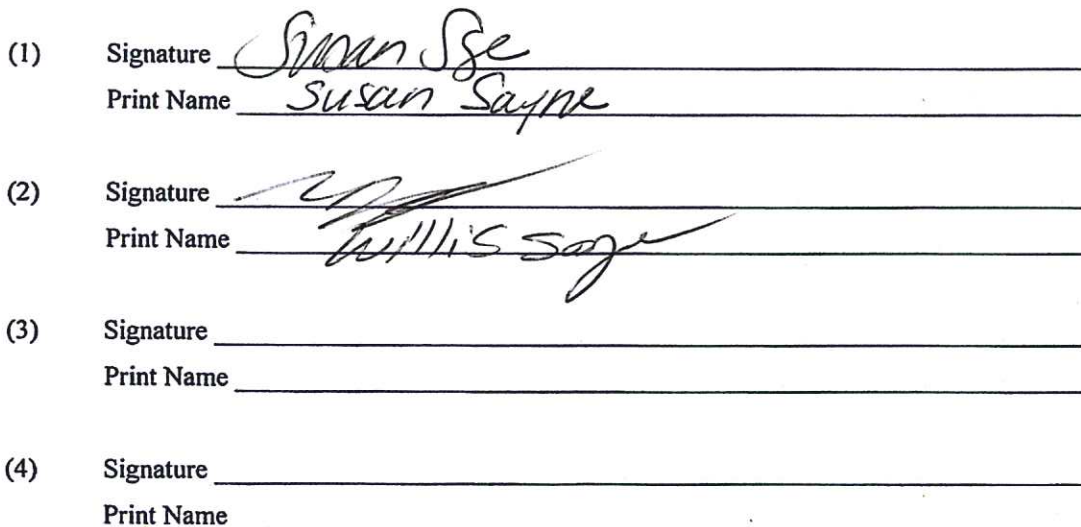 (1) Signature Susan
Print Name Susan Sayne
(2) Signature
Print Name Willis
(3) Signature
Print Name
(4) Signature
Print Name